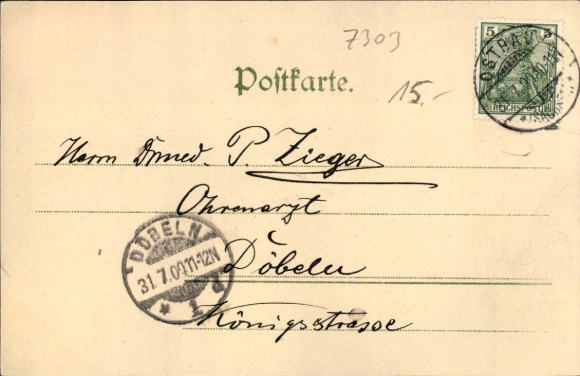 7303
Postkarte.
15.-
5
OSTRAU
REICHSPOST
Herrn Dr med. P. Zieger
Ohrenarzt
Döbeln
Königsstrasse
DÖBELN
31.7.00.11-12N
* 1